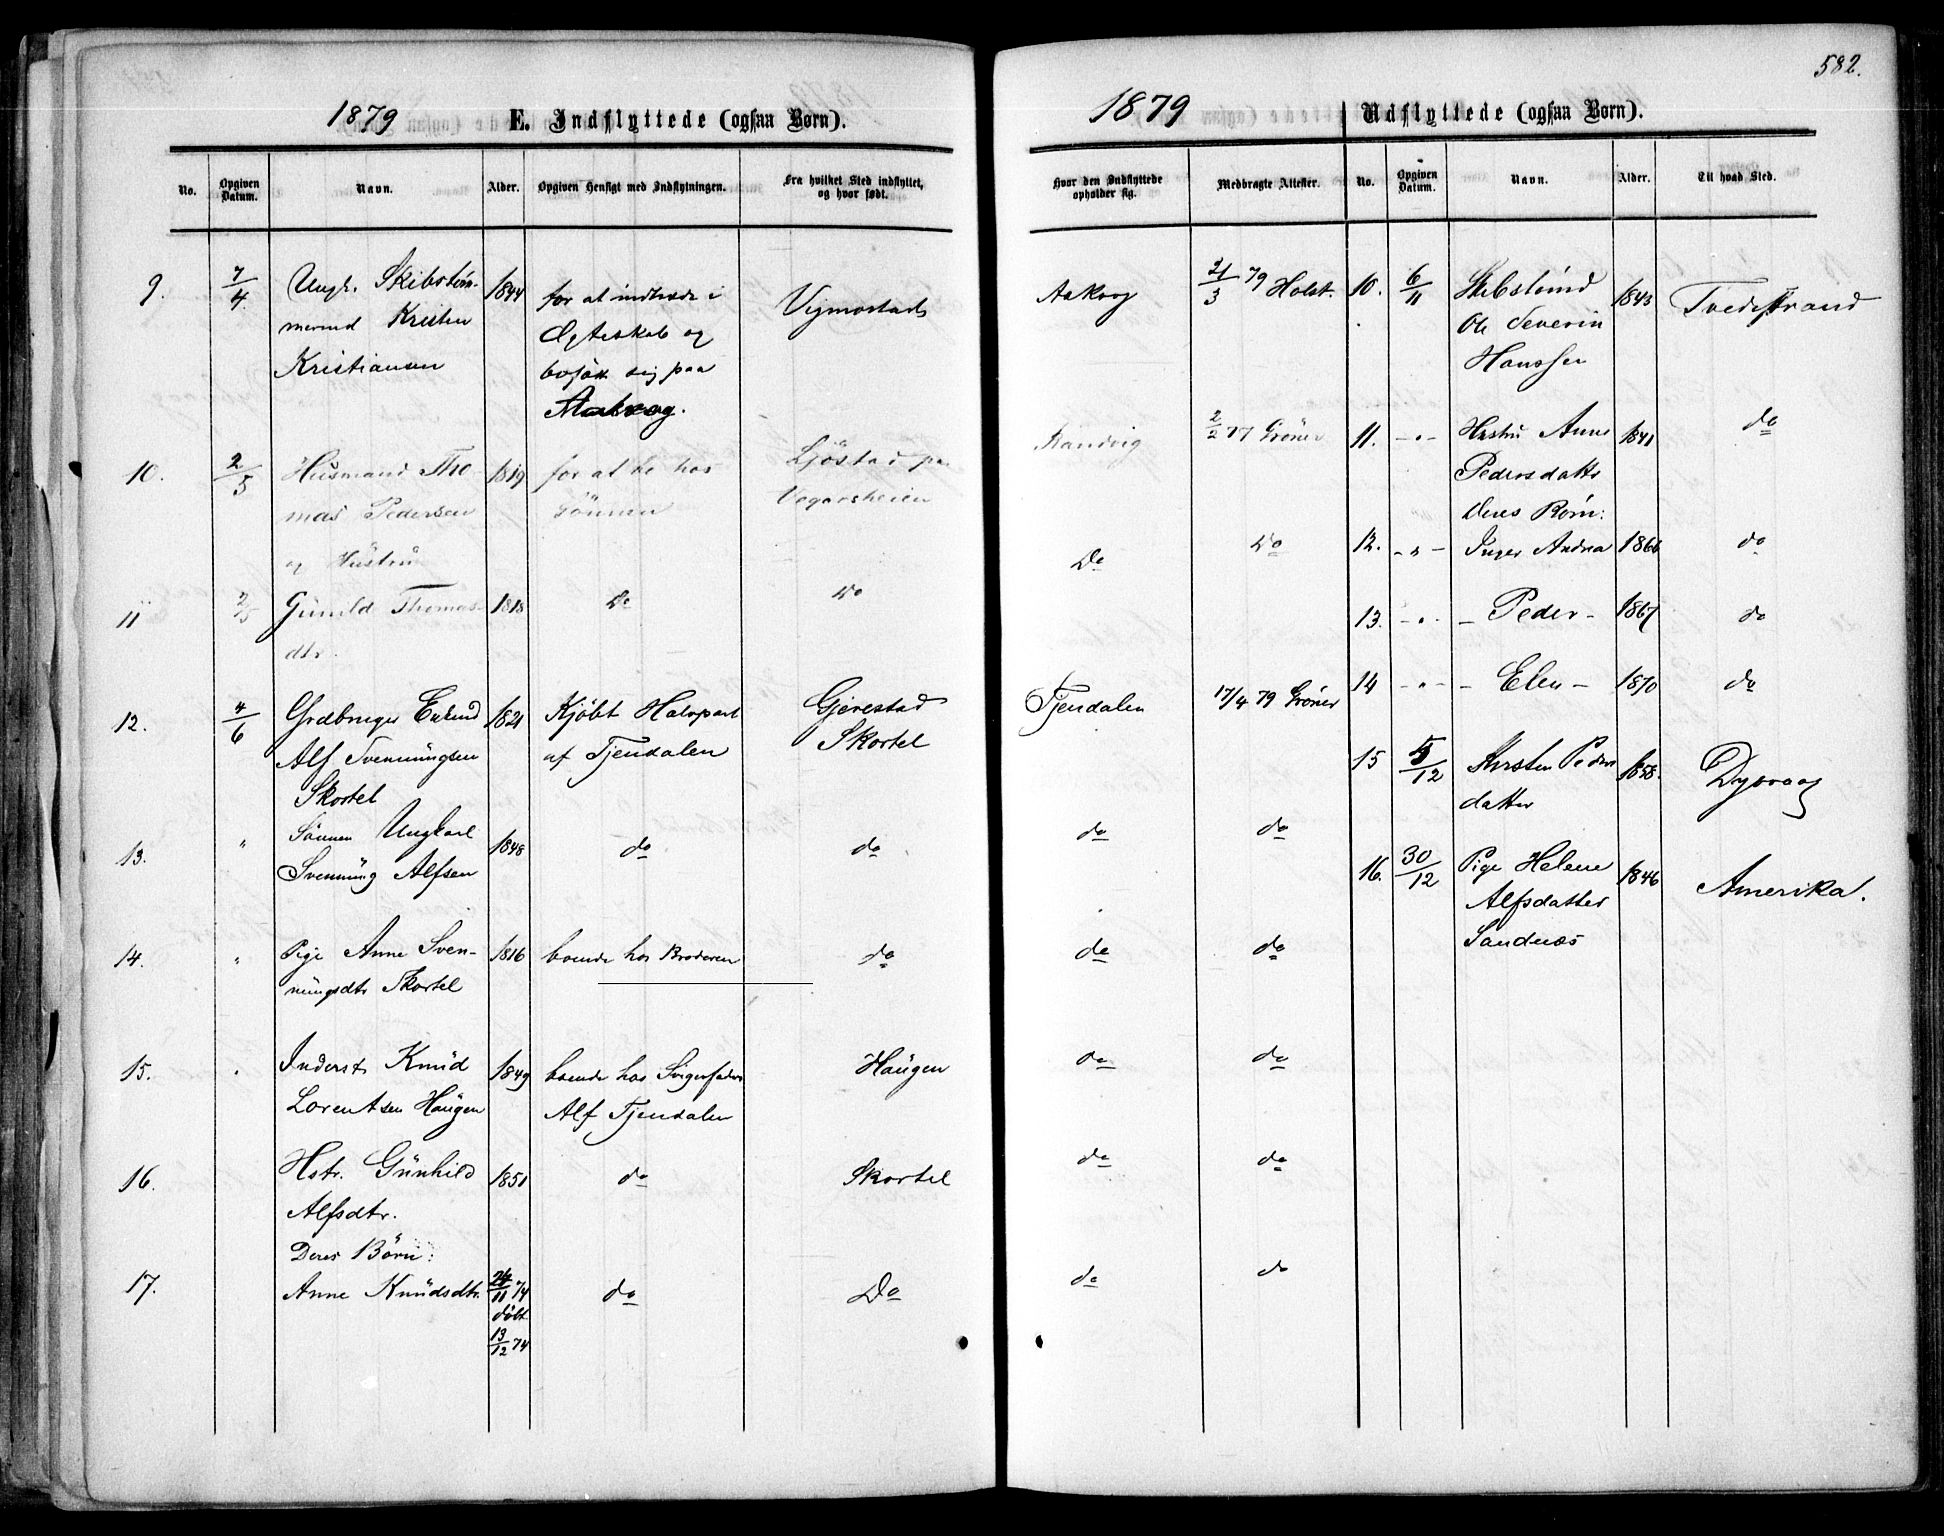 582.
1879 E. Indflyttede (ogsaa Børn).
No. Opgiven Datum. Navn. Alder. Opgiven Hensigt med Indflytningen. Fra hvilket Sted indflyttet, og hvor født.
9. 7/4 Ungk. Skibstøm- 1844 for at indtræde i Vegmostad
mermd Kristen Ægteskab og
Kristiansen bosætte sig paa
Aakvag.
10. 2/5 Husmand Tho- 1819 for at bo hos Ljöstad på
mas Pedersen Sönnen Vegarsheien
og Hustru
11 2/5 Gunild Thomas- 1818 Do Do
dtr.
12. 4/6 Grdbruger Enkmd 1821 Kjöbt Halvpart Gjerestad
Alf Svenningsen af Tjendalen Skortel
Skortel
13. " Sönnen Ungkarl 1848 do do
Svennung Alfsen
14. " Pige Anne Sven- 1816 boende hos Broderen do
nungsdtr Skortel
15. " Inderst Knud 1849 boende hos Svigerfader Haugen
Lorentsen Haugen Alf Tjendalen
16. Hstr. Gunhild 1851 do Skortel
Alfsdtr.
Deres Börn:
17. Anne Knudsdtr. 24/11 74 do Do
döbt
13/12 74
1879 Udflyttede (ogsaa Børn).
Hvor den Indflyttede opholder sig. Medbragte Attester. No. Opgiven Datum. Navn. Alder. Til hvad Sted.
Aakvag 21/3 79 Holst. 10. 6/11 Skibstømd 1843 Tvedestrand
Ole Severin
Hanssen
Sandvig 2/2 77 Gröner 11. -"- Hustru Anne 1841 do
Pedersdatter
Deres Börn:
Do Do 12. -"- Inger Andrea 1866 do
13. -"- - Peder - 1867 do
Tjendalen 17/4 79 Gröner 14 -"- - Elen - 1870 do
15 5/12 Kirsten Peders 1858. Dypvaag
datter
do do
16. 30/12 Pige Helene 1846 Amerika.
Alfsdatter
Sandnæs
do do
do do
do do
do do